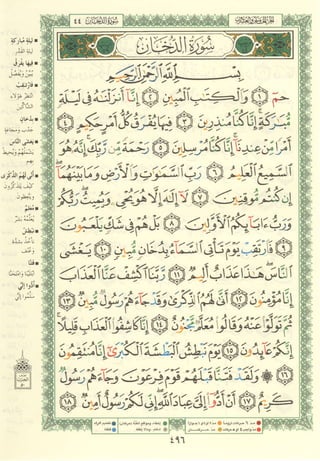 سُورَةُ الدُّخَانِ ٤٤
سُورَةُ الدُّخَانِ
بِسْمِ اللَّهِ الرَّحْمَٰنِ الرَّحِيمِ
حمٓ ۝١ وَالْكِتَابِ الْمُبِينِ ۝٢ إِنَّا أَنزَلْنَاهُ فِي لَيْلَةٍ
مُّبَارَكَةٍ إِنَّا كُنَّا مُنذِرِينَ ۝٣ فِيهَا يُفْرَقُ كُلُّ أَمْرٍ حَكِيمٍ ۝٤
أَمْرًا مِّنْ عِندِنَا إِنَّا كُنَّا مُرْسِلِينَ ۝٥ رَحْمَةً مِّن رَّبِّكَ إِنَّهُ هُوَ
السَّمِيعُ الْعَلِيمُ ۝٦ رَبِّ السَّمَاوَاتِ وَالْأَرْضِ وَمَا بَيْنَهُمَا
إِن كُنتُم مُّوقِنِينَ ۝٧ لَا إِلَٰهَ إِلَّا هُوَ يُحْيِي وَيُمِيتُ رَبُّكُمْ
وَرَبُّ آبَائِكُمُ الْأَوَّلِينَ ۝٨ بَلْ هُمْ فِي شَكٍّ يَلْعَبُونَ
۝٩ فَارْتَقِبْ يَوْمَ تَأْتِي السَّمَاءُ بِدُخَانٍ مُّبِينٍ ۝١٠ يَغْشَى
النَّاسَ هَٰذَا عَذَابٌ أَلِيمٌ ۝١١ رَّبَّنَا اكْشِفْ عَنَّا الْعَذَابَ
إِنَّا مُؤْمِنُونَ ۝١٢ أَنَّىٰ لَهُمُ الذِّكْرَىٰ وَقَدْ جَاءَهُمْ رَسُولٌ مُّبِينٌ ۝١٣
ثُمَّ تَوَلَّوْا عَنْهُ وَقَالُوا مُعَلَّمٌ مَّجْنُونٌ ۝١٤ إِنَّا كَاشِفُو الْعَذَابِ قَلِيلًا
إِنَّكُمْ عَائِدُونَ ۝١٥ يَوْمَ نَبْطِشُ الْبَطْشَةَ الْكُبْرَىٰ إِنَّا مُنتَقِمُونَ
۝١٦ ۞ وَلَقَدْ فَتَنَّا قَبْلَهُمْ قَوْمَ فِرْعَوْنَ وَجَاءَهُمْ رَسُولٌ
كَرِيمٌ ۝١٧ أَنْ أَدُّوا إِلَيَّ عِبَادَ اللَّهِ إِنِّي لَكُمْ رَسُولٌ أَمِينٌ ۝١٨
٤٩٦